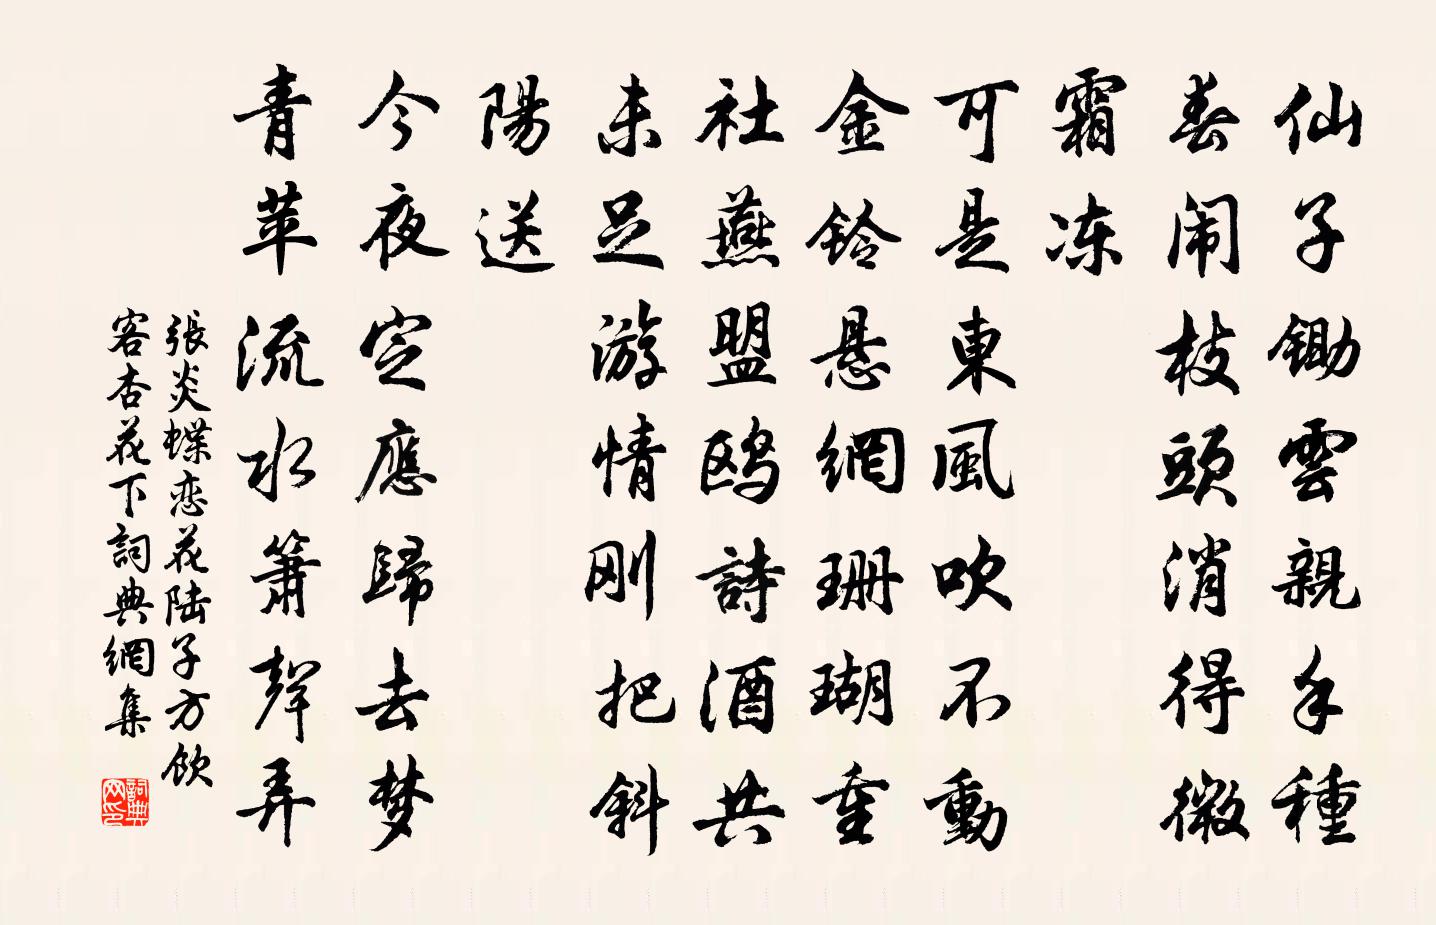 仙子鋤雲親手種
春闹枝頭消得微
霜冻
可是東風吹不動
金鈴悬網珊瑚重
社燕盟鸥詩酒共
未足游情刚把斜
陽送
今夜定應歸去梦
青苹流水箫聲弄
張炎蝶恋花陆子方飲
客杏花下詞典網集
詞典网印